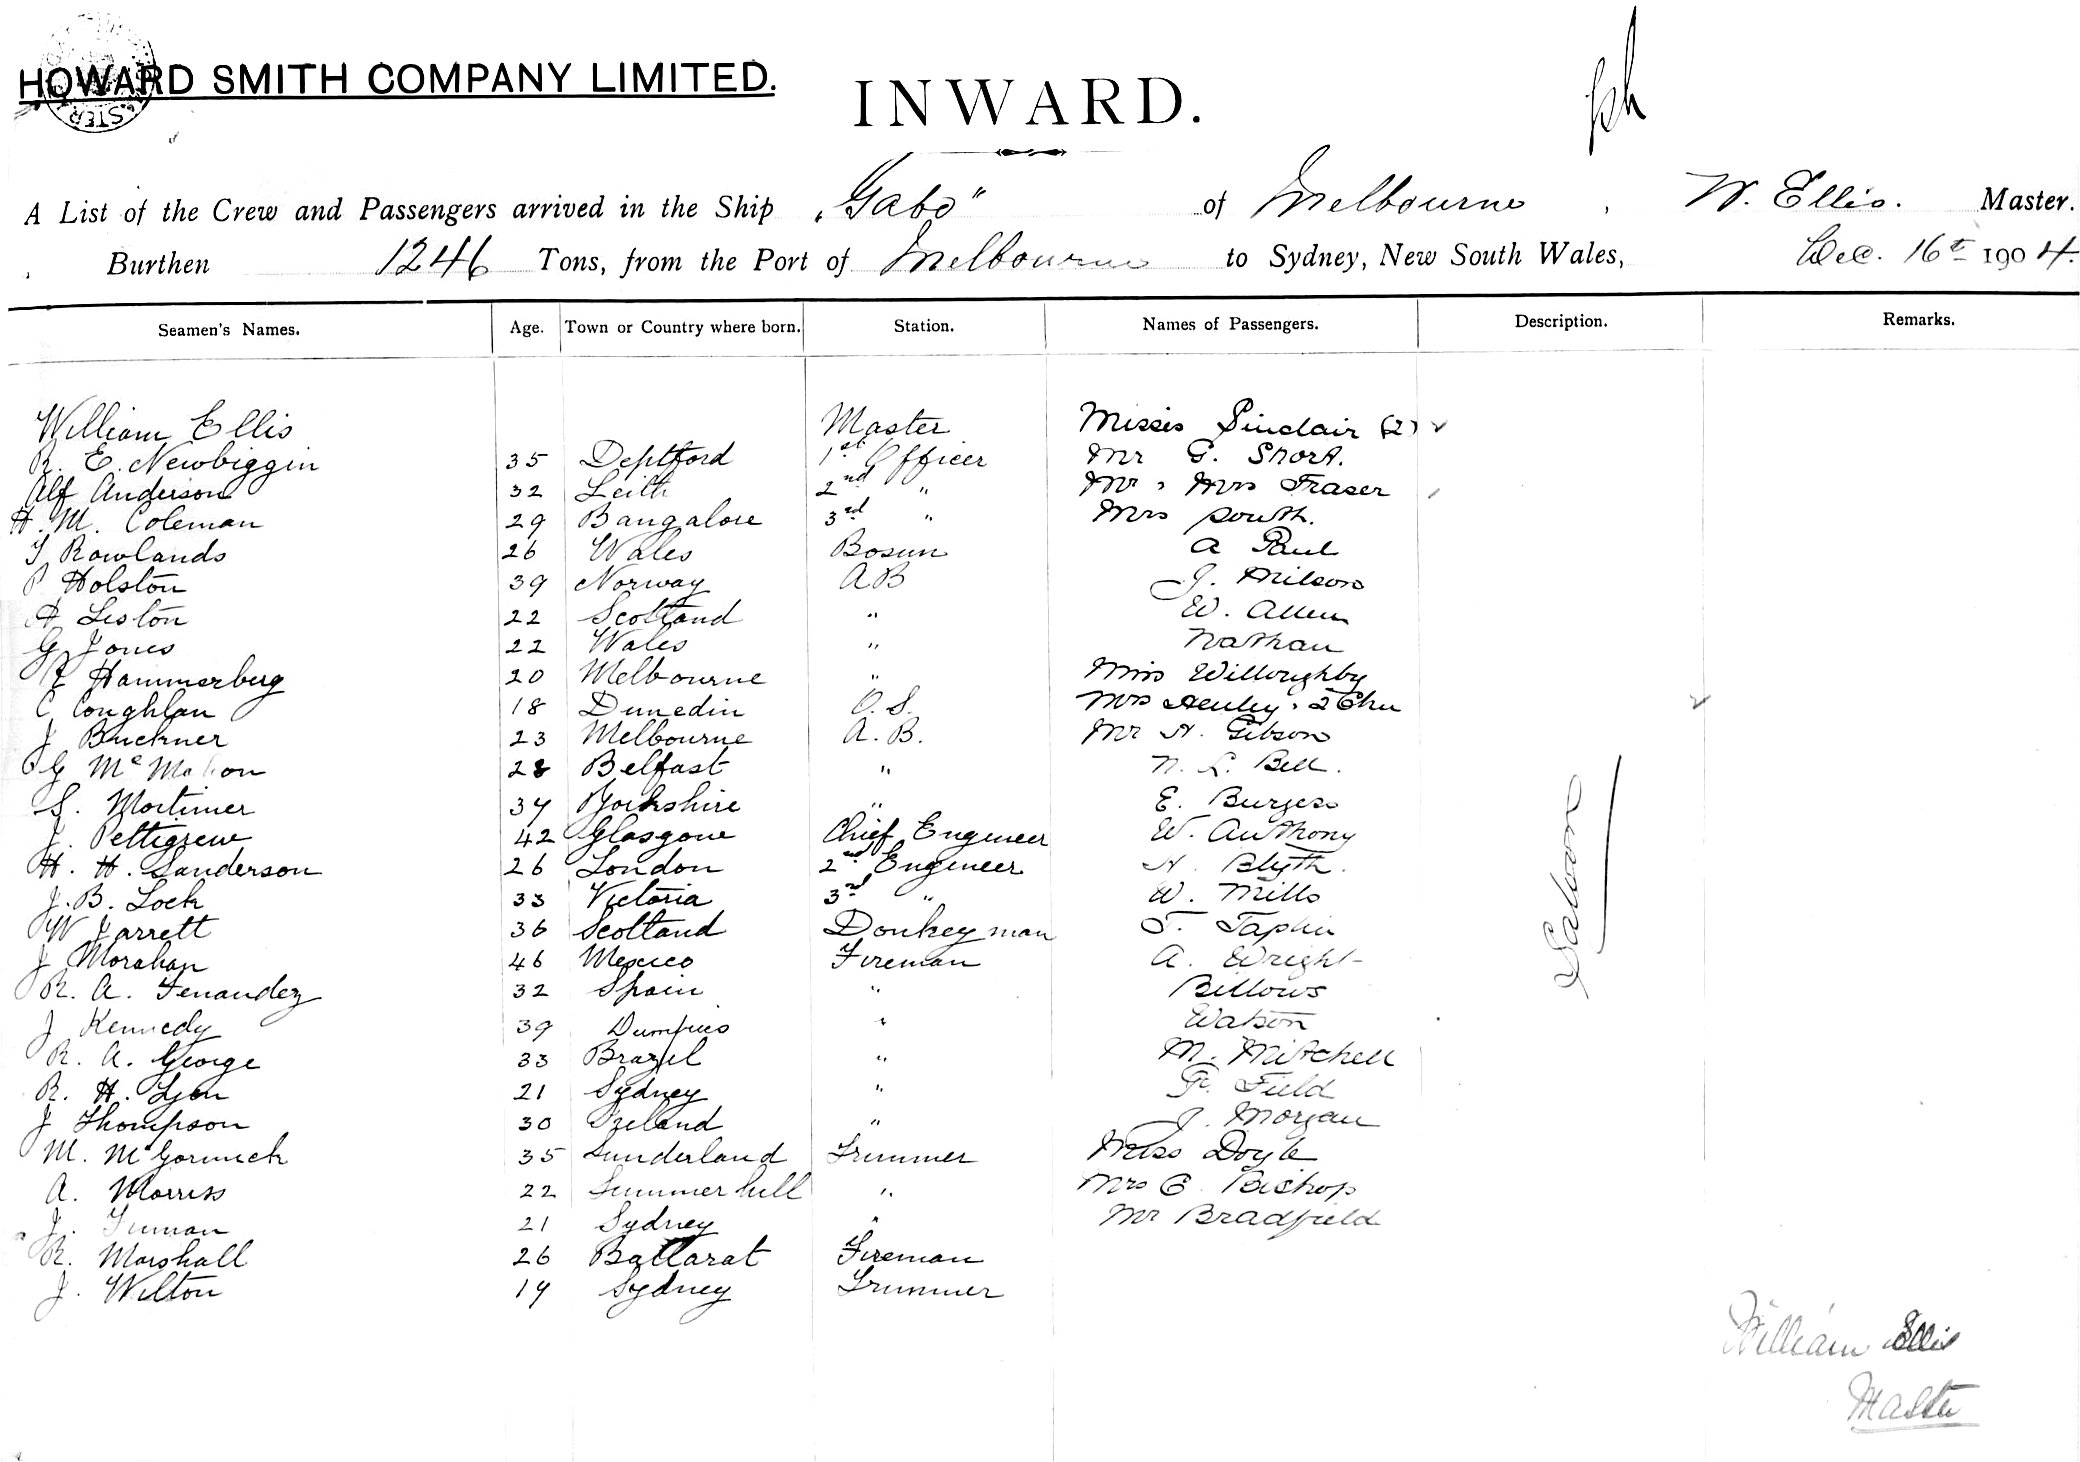 HOWARD SMITH COMPANY LIMITED.
INWARD.
A List of the Crew and Passengers arrived in the Ship "Gabo" of Melbourne, W. Ellis. Master.
Burthen 1246 Tons, from the Port of Melbourne to Sydney, New South Wales, Dec. 16th 1904.
Seamen's Names. Age. Town or Country where born. Station. Names of Passengers. Description. Remarks.
William Ellis Master Misses Sinclair (2)
R. E. Newbiggin 35 Deptford 1st Officer Mr G. Short.
Alf Anderson 32 Leith 2nd " Mr & Mrs Fraser
H. M. Coleman 29 Bangalore 3rd " Mrs South.
T Rowlands 26 Wales Bosun A Paul
P Holston 39 Norway AB J. Milson
A Liston 22 Scotland " W. Allen
G Jones 22 Wales " Nathan
Hammerberg 20 Melbourne " Miss Willoughby
C Coghlan 18 Dunedin O.S. Mrs Henley & 2 Chn
J Buckner 23 Melbourne A.B. Mr H. Gibson
G McMahon 28 Belfast " N. L. Bell.
S. Mortimer 34 Yorkshire " E. Burgess
J. Pettigrew 42 Glasgow Chief Engineer W. Anthony
H. H. Sanderson 26 London 2nd Engineer H. Blyth.
J. B. Lock 33 Victoria 3rd " W. Mills
W Jarrett 36 Scotland Donkeyman T. Taplin
J Morahan 46 Mexico Fireman A. Wright
R. A. Fenandez 32 Spain " Billows
J Kennedy 39 Dumfries " Watson
R. A. George 33 Brazil " M. Mitchell
R. H. Lyon 21 Sydney " F. Field
J Thompson 30 Ireland " J. Morgan
M. McCormick 35 Sunderland Trimmer Miss Doyle
A. Morriss 22 Summerhill " Mrs E. Bishop
J. 21 Sydney " Mr Bradfield
R. Marshall 26 Ballarat Fireman
J. Wilton 19 Sydney Trimmer
Saloon
William Ellis
Master